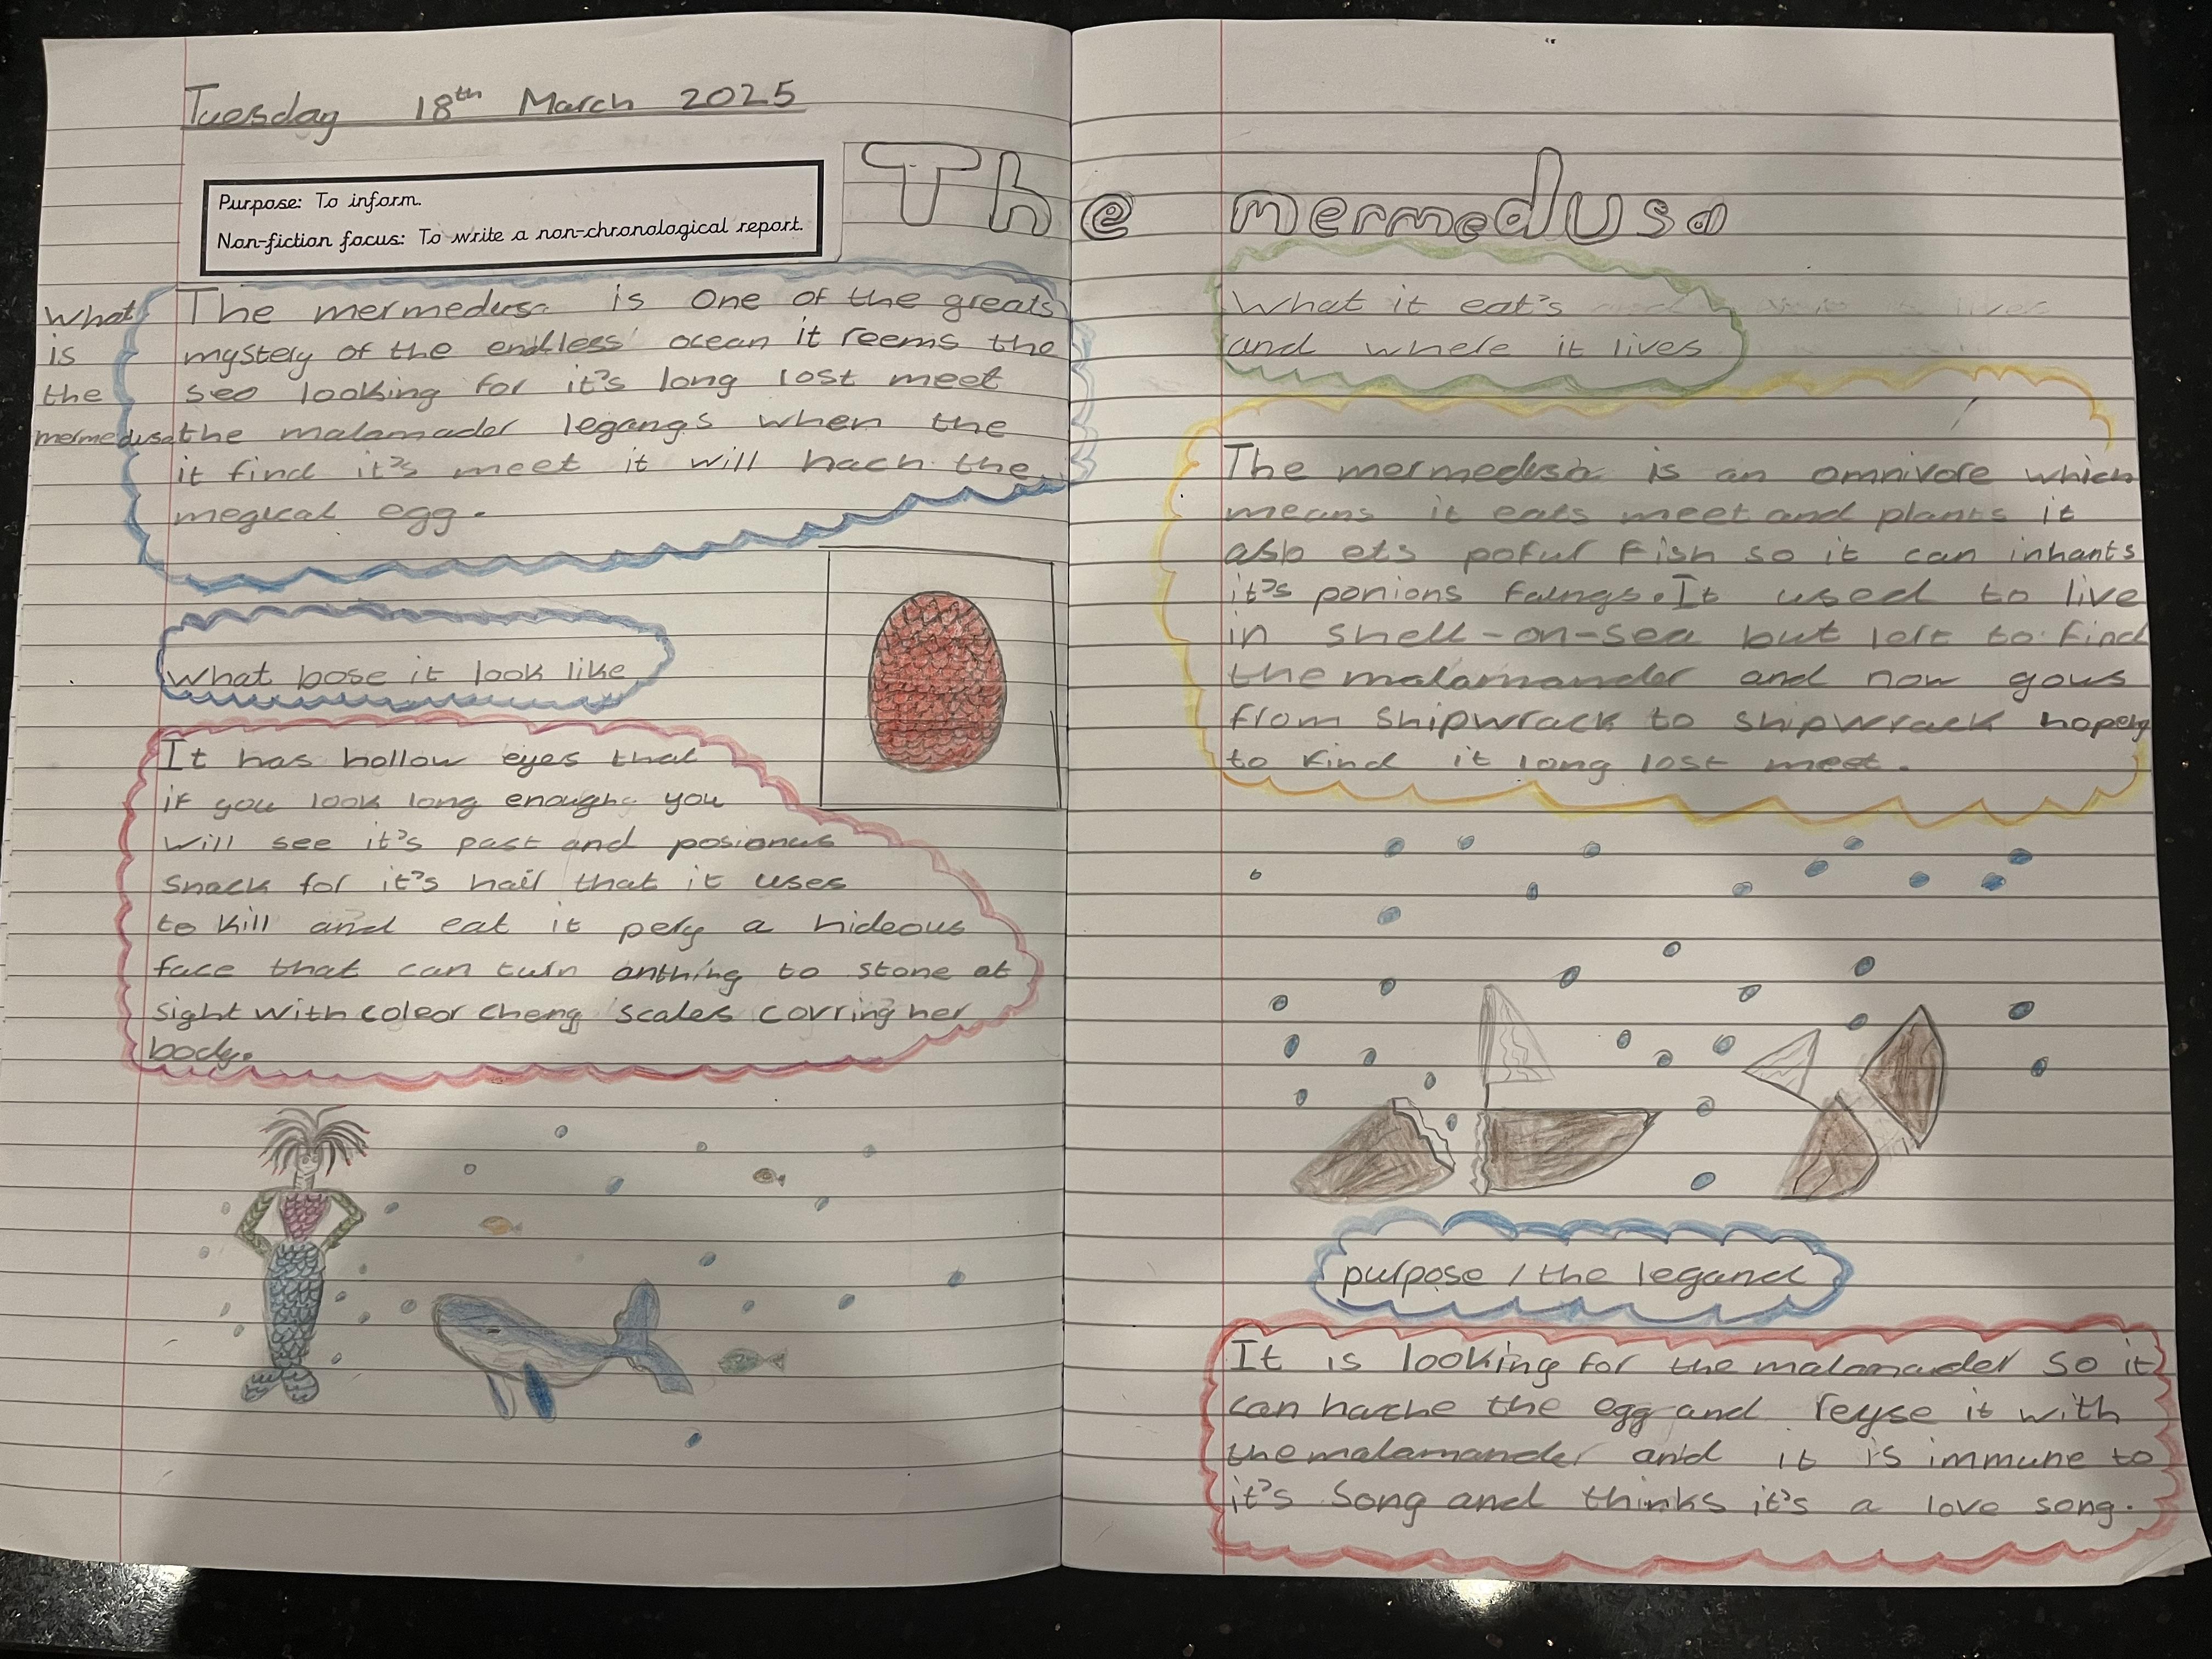 Tuesday 18th March 2025
Purpose: To inform.
Non-fiction focus: To write a non-chronological report.
The mermedusa
What
is
the
mermedusa
The mermedusa is one of the greats
mystery of the endless ocean it reems the
sea looking for it's long lost meet
the malamader legangs when the
it find it's meet it will hach the
megical egg.
what bose it look like
It has hollow eyes that
if you look long enough you
will see it's past and posionus
snack for it's hair that it uses
to kill and eat it pery a hideous
face that can turn anthing to stone at
sight with coleor cheng scales covring her
body.
What it eat's
and where it lives
The mermedusa is an omnivore which
means it eats meet and plants it
also ets poful fish so it can inhants
it's ponions faungs. It used to live
in shell-on-sea but left to find
the malamander and now gous
from shipwrack to shipwrack hopely
to kind it long lost meet.
purpose / the legand
It is looking for the malamader so it
can hache the egg and reyse it with
the malamander and it is immune to
it's song and thinks it's a love song.